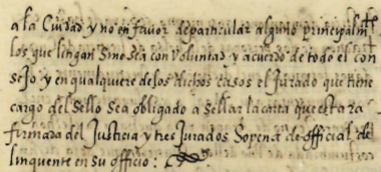 a la Ciudad y no en favor de particular alguno principalmte
los que lingan sino sea con voluntad y acuerdo de todo el con
sejo y en qualquiere de los dichos casos el Jurado que tiene
cargo del sello sea obligado a sellar la carta que estara
firmada del Justicia y tres Jurados Sopena de official de
linquente en su officio: